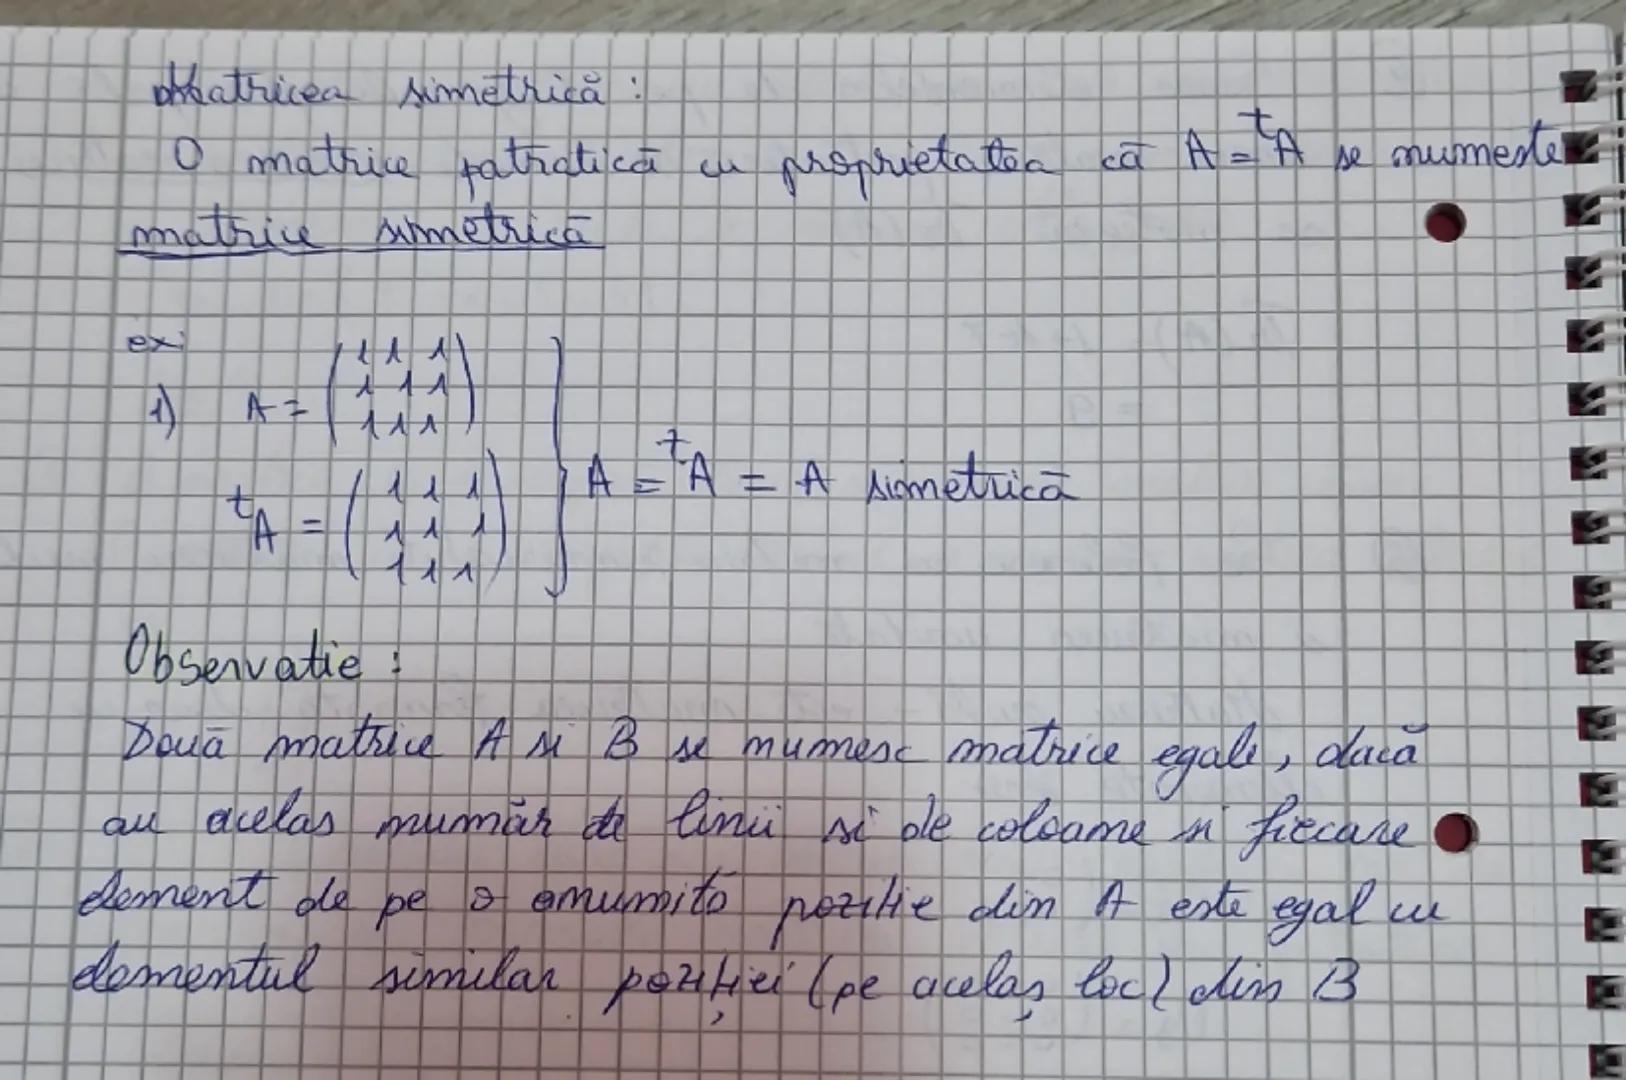 Matricea simetrică :
O matrice patratică cu proprietatea că A = ᵗA se numeste
matrice simetrică
ex:
1) A = (1 1 1
1 1 1
1 1 1)
ᵗA = (1 1 1
1 1 1
1 1 1)
} A = ᵗA = A simetrică
Observatie :
Două matrice A si B se numesc matrice egale, dacă
au acelas număr de linii si de coloame si fiecare
element de pe o anumită pozitie din A este egal cu
elementul similar poziției (pe acelaș loc) din B